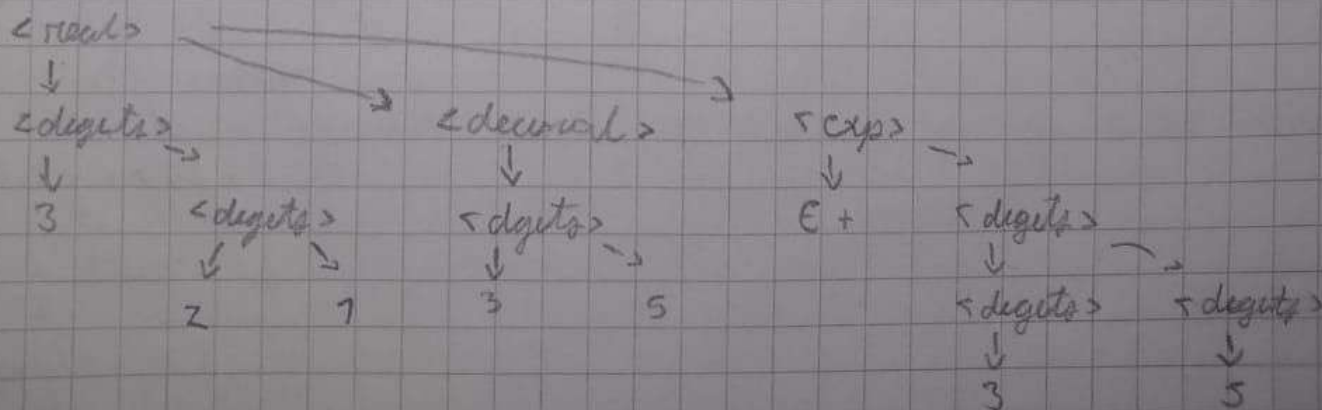 <real>
<digits> <decimal> <exp>
3 <digits> <dgits> E + <digits>
2 1 3 5 <digits> <digits>
3 5